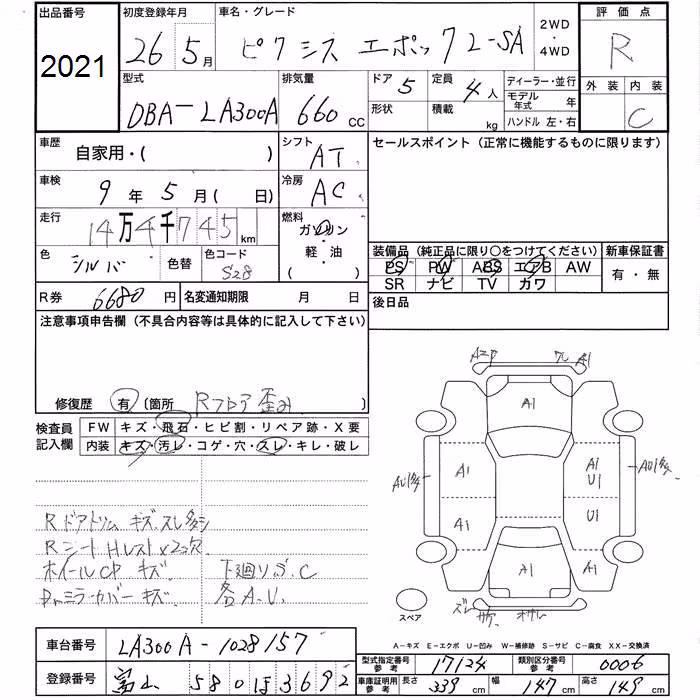 出品番号 初度登録年月 車名・グレード 2WD ・ 4WD 評価点
2021 26 5月 ピクシス エポック 2-SA R
型式 排気量 ドア 5 定員 4人 ディーラー・並行 外装 内装
DBA-LA300A 660 CC 形状 積載 kg モデル年式 年 C
ハンドル 左・右
車歴 自家用・( ) シフト AT セールスポイント(正常に機能するものに限ります)
車検 9年 5月( 日) 冷房 AC
走行 14万4千745km 燃料 ガソリン
色 シルバ 色替 色コード S28 軽・油 ( )
装備品(純正品に限り○をつけてください) 新車保証書
PS PW ABS エアB AW 有・無
SR ナビ TV カワ
R券 6680円 名変通知期限 月 日 後日品
注意事項申告欄(不具合内容等は具体的に記入して下さい)
修復歴 有 〔箇所 Rフロア歪み 〕
検査員記入欄 FW キズ・飛石・ヒビ割・リペア跡・X要
内装 キズ・汚レ・コゲ・穴・スレ・キレ・破レ
Rドアトリム キズ、スレ多シ
Rシート Hレスト×2欠
ホイールCP キズ 下廻りS.C
Rrミラーカバー キズ 各A.U.
A1
A1
A1 A1 U1
A1 U1
A1 A1
スペア
A-キズ E-エクボ U-凹み W-補修跡 S-サビ C-腐食 XX-交換済
車台番号 LA300A-1028157
型式指定番号参考 17124 類別区分番号参考 0006
登録番号 富山 580 ほ 3692
車庫証明用参考 長さ 339cm 幅 147cm 高さ 149cm